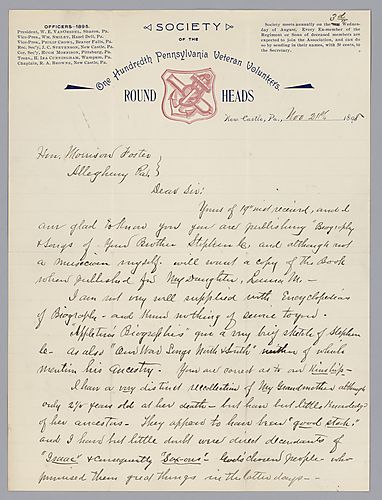 OFFICERS—1895.
President, W. E. VANTRUMEL, Sharon, Pa.
Vice-Pres., WM. SMILEY, Hazel Dell, Pa.
Vice-Pres., PHILIP CROWL, Beaver Falls, Pa.
Rec. Sec'y, J. C. STEVENSON, New Castle, Pa.
Cor. Sec'y, HUGH MORRISON, Pittsburg, Pa.
Treas., H. IRA CUNNINGHAM, Wampum, Pa.
Chaplain, R. A. BROWNE, New Castle, Pa.
SOCIETY
OF THE
One Hundredth Pennsylvania Veteran Volunteers.
ROUND HEADS
Society meets annually on the Wednes-
day of August. Every Ex-member of the
Regiment or Sons of deceased members are
expected to join the Association, and can do
so by sending in their names, with 50 cents, to
the Secretary.
New Castle, Pa., Nov 21st 1895
Hon. Morrison Foster
Allegheny Pa.
Dear Sir:
Yours of 19th inst received, and I
am glad to know you you are publishing "Biography
& Songs of Your Brother Stephen C, and although not
a musician myself will want a copy of the Book
when published for My Daughter, M.—
I am not very well supplied with Encyclopedias
of Biography— and found nothing of service to you.
"Appletons Biographies" give a very brief sketch of Stephen
C— as also "Our War Songs North & South" neither of which
mention his ancestry. You are correct as to our Kinship—
I have a very distinct recollection of My Grandmother although
only 2½ years old at her death— but have but little knowledge
of her ancestors— They appear to have been "good stock,"
and I have but little doubt were direct decendants of
"Isaac" & consequently "Saxons"— God's chosen people— who
promised them good things in the latter days—